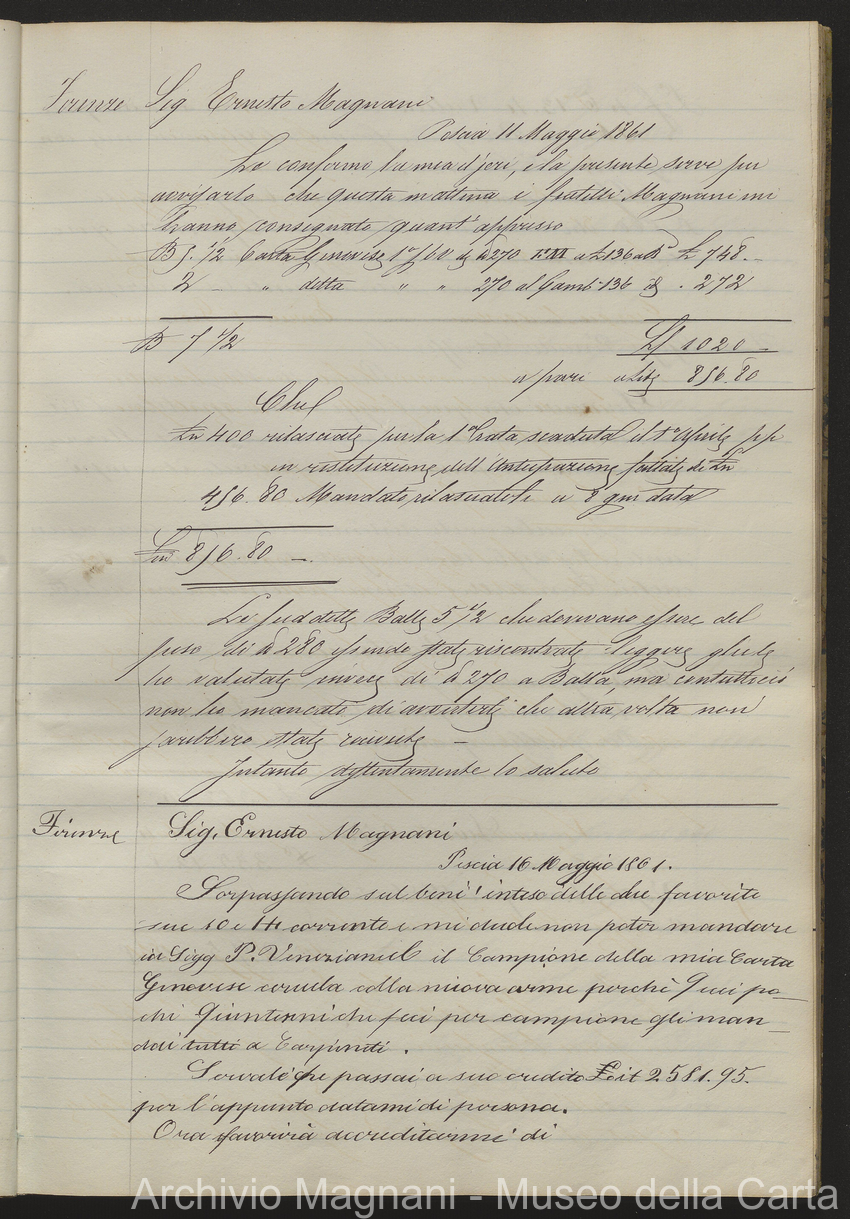 Firenze Sig. Ernesto Magnani
Pescia 11 Maggio 1861
Le confermo la mia d'jeri, e la presente serve per
avvisarlo che questa mattina i fratelli Magnani mi
hanno consegnato quant' appresso
B 5. 1/2 Carta Genovese 1a di 270 a £ 136 £ 748.-
2 - " detta " " 270 al Camb. 136 . 272
B 7 1/2
£ 1020 -
a pari a Lit 856.80
Che
Ln 400 rilasciate per la 1a rata scaduta il 1o Aprile pp
in restituzione dell' Anticipazione fattale di Ln
456.80 Mandato rilasciatole a 8 gni data
Ln 856.80 -.
Le suddette Balle 5 1/2 che dovevano essere del
peso di 280 essendo state riscontrate leggere gliele
ho valutate invece di 270 a Balla, ma contuttociò
non ho mancato di avvertirli che altra volta non
sarebbero state ricevute -
Intanto distintamente lo saluto
Firenze Sig. Ernesto Magnani
Pescia 16 Maggio 1861.
Sorpassando sul beni' inteso delle due favorite
sue 10 e 14 corrente e mi duole non poter mandare
ai Sigg P. Veneziani e C il Campione della mia Carta
Genovese cerulea colla nuova arme perchè quei po-
chi Quinterni che feci per campione gli man-
dai tutti a
che passai a suo credito £ it 2581.95.
per l'appunto datami di persona.
Ora favorirà accreditarmi di
Archivio Magnani - Museo della Carta